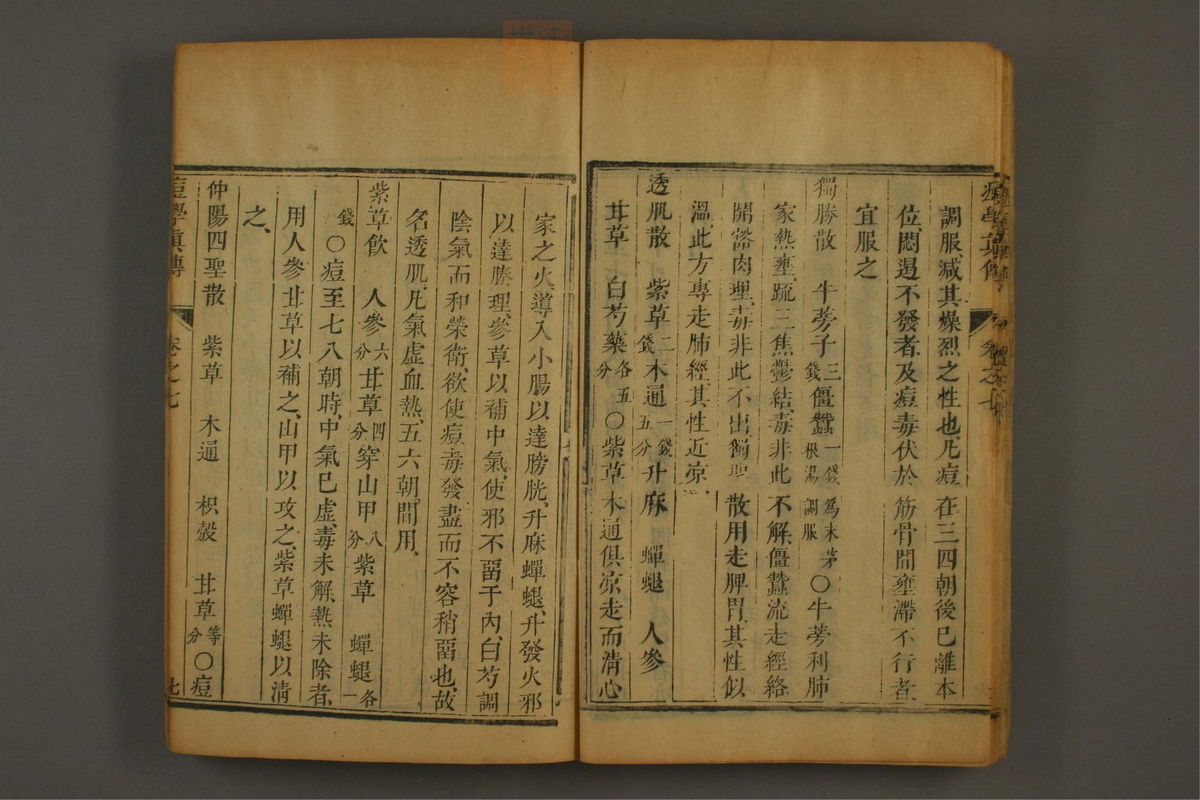 調服減其燥烈之性也凡痘在三四朝後已離本
位悶遏不發者及痘毒伏於筋骨間壅滯不行者
宜服之
獨勝散　牛蒡子三錢僵蠶一錢爲末茅根湯調服〇牛蒡利肺
家熱壅䟽三焦鬱結毒非此不解僵蠶流走經絡
開豁肉理毒非此不出獨聖散用走脾胃其性似
溫此方專走肺經其性近凉
透肌散　紫草二錢木通一錢五分升麻　蟬蜕　人參
甘草　白芍藥各五分〇紫草木通俱凉走而淸心
家之火導入小腸以達膀胱升麻蟬蜕升發火邪
以達腠理參草以補中氣使邪不畱于內白芍調
陰氣而和榮衛欲使痘毒發盡而不容稍畱也故
名透肌凡氣虛血熱五六朝間用
紫草飲　人參六分甘草四分穿山甲八分紫草　蟬蜕各一
錢〇痘至七八朝時中氣已虛毒未解熱未除者
用人參甘草以補之山甲以攻之紫草蟬蜕以淸
之
仲陽四聖散　紫草　木通　枳殻　甘草等分〇痘
痘學眞傳　卷之七　七